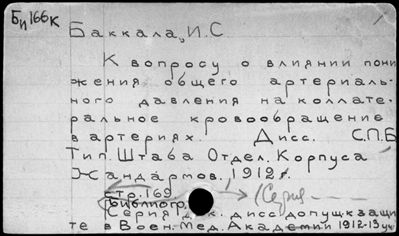 Би 166к
Баккала, И.С
К вопросу о влиянии пони
жения общего артериаль-
ного давления на коллате-
ральное кровообращение
в артериях. Дисс. С.П.Б
Тип. Штаба Отдел. Корпуса
Жандармов. 1912г.
стр. 169 (Серия
Библиогр.
Серия док. дисс. допущ. к защи
те в Воен. Мед. Академии 1912-13 уч